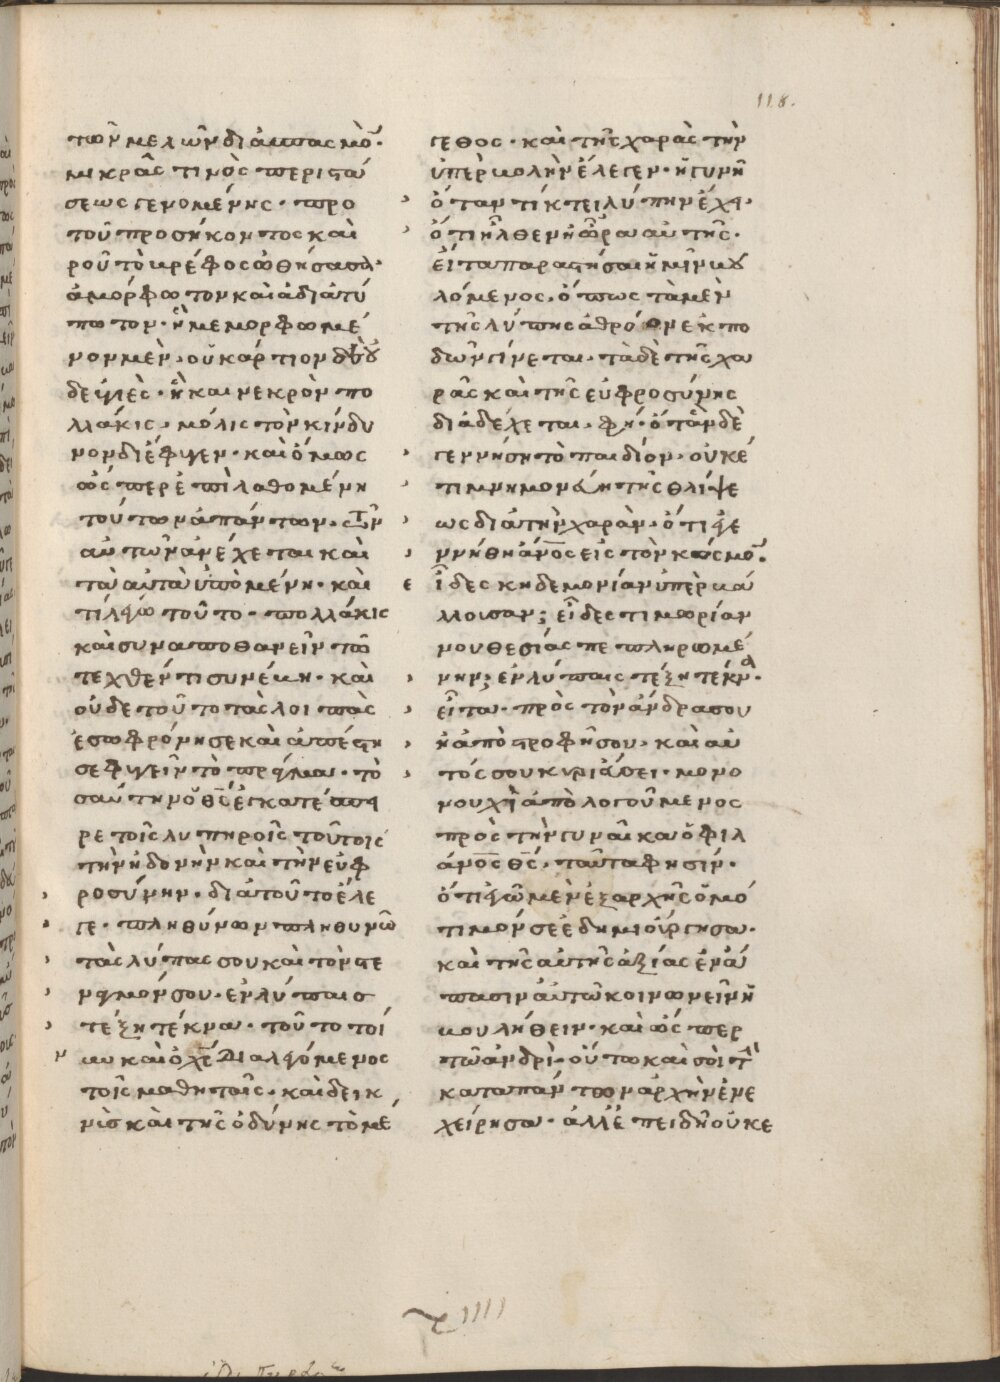 118.
τῶν μελῶν διάπλασμὸ.
μικρᾶς τινὸς περιστά
σεως γενομένης. πρὸ
τοῦ προσήκοντος και
ροῦ τὸ βρέφος ὠθήσασα.
ἀμόρφωτον καὶ ἀδιατύ
πωτον. ἢ μεμορφωμέ
νον μὲν. οὐκ ἄρτιον δὲ οὐ
δε ὑγιὲς. ἢ και νεκρὸν πο
λλάκις. μόλις τὸν κίνδυ
νον διέφυγεν. καὶ ὅμως
ὥς περ ἐπιλαθομένη
τούτων ἁπάντων. τῶν
αὐτῶν ἀνέχεται καὶ
τὰ αὐτὰ ὑπομένη. καὶ
τί λέγω τοῦτο. πολλάκις
καὶ συναποθανεῖν τῶ
τεχθέντι συνέβη. καὶ
οὐδε τοῦτο τὰς λοιπὰς
ἐσωφρόνησε καὶ ἀπέστη
σε φυγεῖν τὸ πρᾶγμα. τὸ
σαύτην ὁ θς ἐγκατέσπει
ρε τοῖς λυπηροῖς τούτοις
τὴν ἡδονὴν καὶ τὴν εὐφ
ροσύνην. διὰ τοῦτο ἔλε
γε. πληθύνων πληθυνῶ
τὰς λύπας σου καὶ τὸν στε
ναγμόν σου. ἐν λύπαις
τέξη τέκνα. τοῦτο τοί
νυν καὶ ὁ χς διαλεγόμενος
τοῖς μαθηταῖς. καὶ δεικ
νὺς καὶ τῆς ὀδύνης τὸ μέ
γεθος. καὶ τῆς χαρᾶς τὴν
ὑπερβολὴν ἔλεγεν. ἡ γυνὴ
ὅταν τίκτει λύπην ἔχει.
ὅτι ἦλθεν ἡ ὥρα αὐτῆς.
εἶτα παραστῆσαι ἡμῖν βου
λόμενος. ὅπως τὰ μὲν
τῆς λύπης ἀθρόον ἐκπο
δὼν γίνεται. τὰ δὲ τῆς χα
ρᾶς καὶ τῆς εὐφροσύνης
διαδέχεται. φη. ὅταν δὲ
γεννήση τὸ παιδίον. οὐκέ
τι μνημονεύει τῆς θλίψε
ως διὰ τὴν χαρὰν. ὅτι ἐγε
ννήθη ἄνος εἰς τὸν κόσμον.
εἶδες κηδεμονίαν ὑπερβά
λλουσαν; εἶδες τιμωρίαν
νουθεσίας πεπληρωμέ
νην; ἐν λύπαις τέξη τέκνα.
εἶτα. πρὸς τὸν ἄνδρα σου
ἡ ἀποστροφή σου. καὶ αὐ
τός σου κυριεύσει. μονο
νουχὶ ἀπολογούμενος
πρὸς τὴν γυναῖκα ὁ φιλ
άνος θς. ταῦτα φησίν.
ὅτι ἐγὼ μὲν ἐξ ἀρχῆς ὁμό
τιμόν σε ἐδημιούργησα.
καὶ τῆς αὐτῆς ἀξίας ἐν ἅ
πασιν αὐτῶ κοινωνεῖν ἠ
βουλήθειν. καὶ ὥς περ
τῶ ἀνδρὶ. οὕτω καὶ σοὶ τὴν
κατὰ πάντων ἀρχὴν ἐνε
χείρησα. ἀλλ᾽ ἐπειδὴ οὐκ ἐ